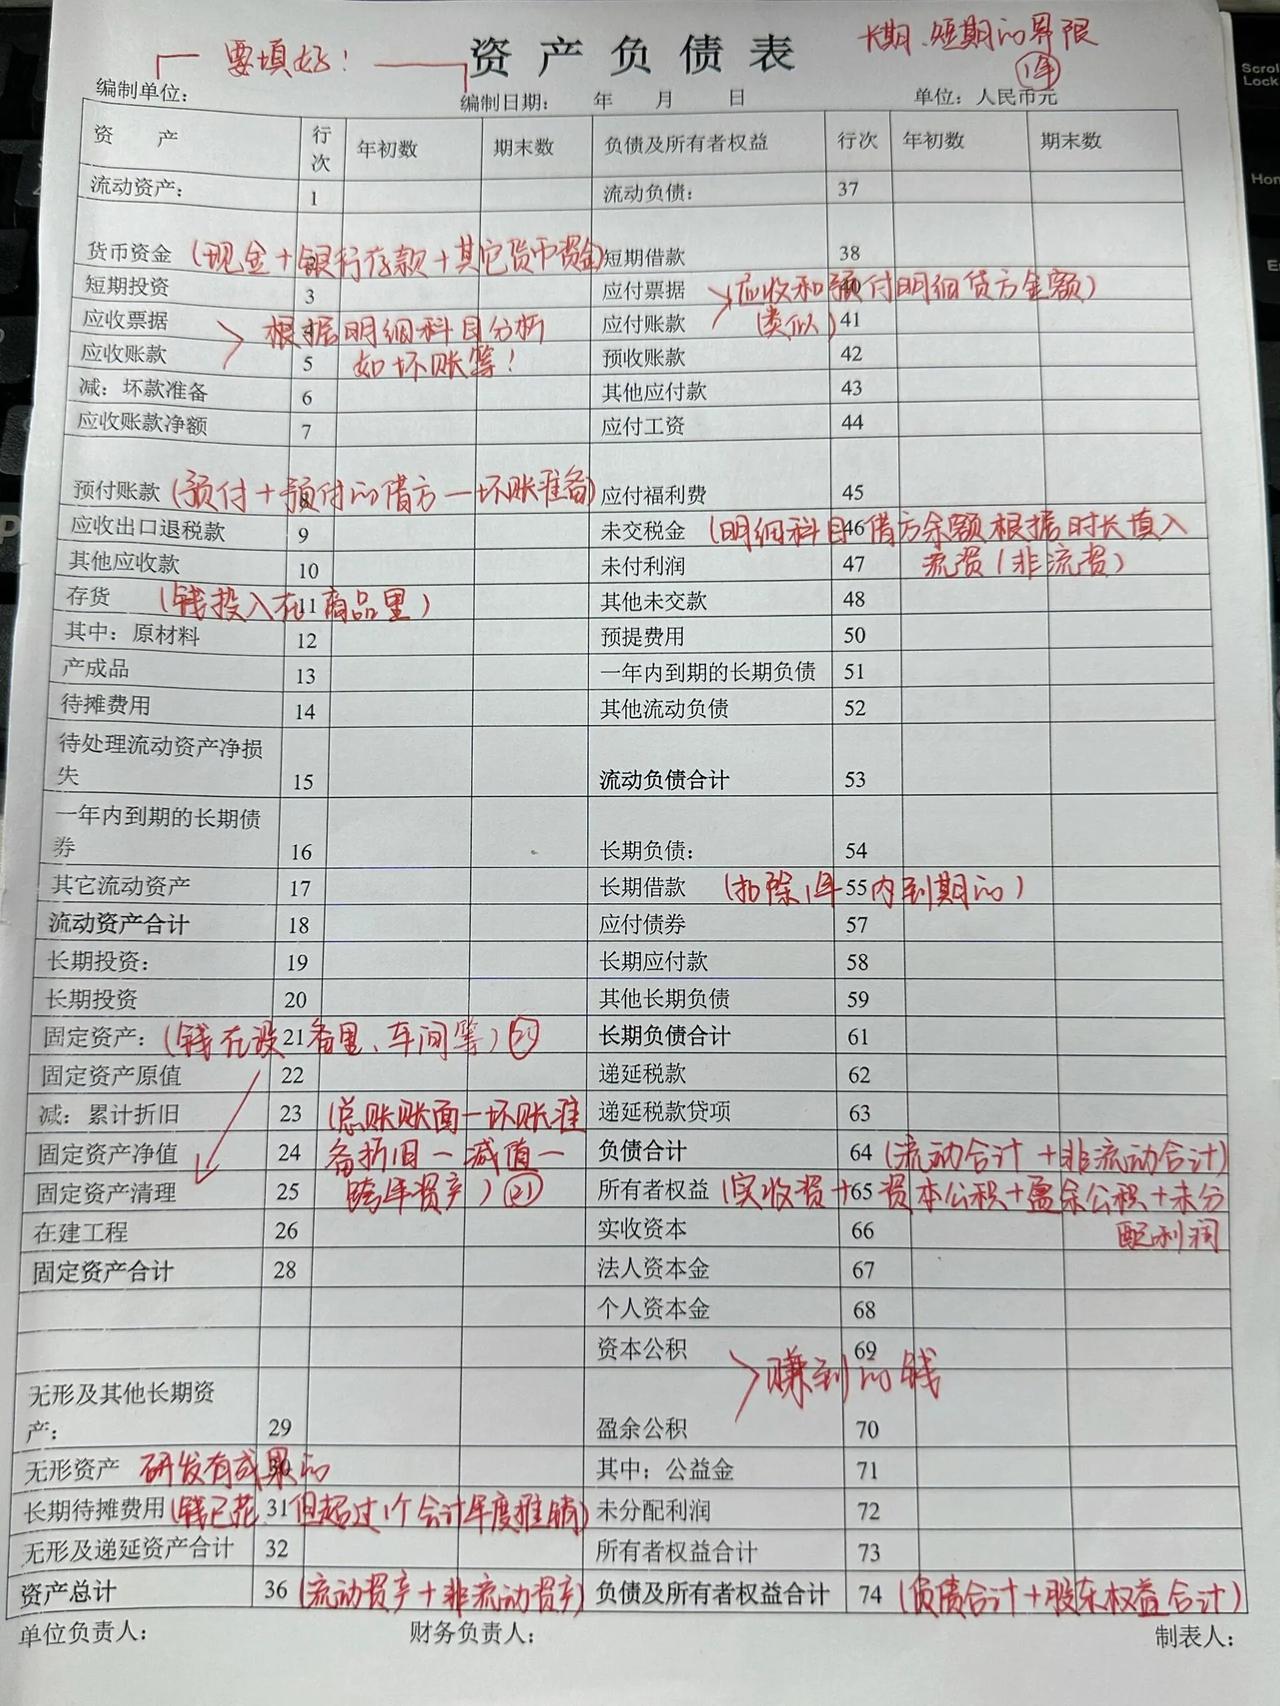 要填好！
资产负债表
长期、短期的界限
1年
编制单位：
编制日期： 年 月 日
单位：人民币元
资 产 行次 年初数 期末数 负债及所有者权益 行次 年初数 期末数
流动资产： 1 流动负债： 37
货币资金 (现金+银行存款+其它货币资金) 短期借款 38
短期投资 3 应付票据 应收和预付明细贷方金额)
应收票据 根据明细科目分析 应付账款 (类似) 41
应收账款 5 如坏账等！ 预收账款 42
减：坏款准备 6 其他应付款 43
应收账款净额 7 应付工资 44
预付账款 (预付+预付的借方-坏账准备) 应付福利费 45
应收出口退税款 9 未交税金 (明细科目46借方余额根据时长填入
其他应收款 10 未付利润 47 流资(非流资)
存货 (钱投入在11商品里) 其他未交款 48
其中：原材料 12 预提费用 50
产成品 13 一年内到期的长期负债 51
待摊费用 14 其他流动负债 52
待处理流动资产净损
失 15 流动负债合计 53
一年内到期的长期债
券 16 长期负债： 54
其它流动资产 17 长期借款 (扣除1年55内到期的)
流动资产合计 18 应付债券 57
长期投资： 19 长期应付款 58
长期投资 20 其他长期负债 59
固定资产：(钱在设21备里、车间等) 长期负债合计 61
固定资产原值 22 递延税款 62
减：累计折旧 23 (总账账面-坏账准 递延税款贷项 63
固定资产净值 24 备折旧-减值- 负债合计 64 (流动合计+非流动合计)
固定资产清理 25 跨年资产) 21 所有者权益 (实收资+65资本公积+盈余公积+未分
在建工程 26 实收资本 66 配利润
固定资产合计 28 法人资本金 67
个人资本金 68
资本公积 69
赚到的钱
无形及其他长期资
产： 29 盈余公积 70
无形资产 研发有成果的 30 其中：公益金 71
长期待摊费用 (钱已花31但超过1个会计年度摊销) 未分配利润 72
无形及递延资产合计 32 所有者权益合计 73
资产总计 36 (流动资产+非流动资产) 负债及所有者权益合计 74 (负债合计+股东权益合计)
单位负责人： 财务负责人： 制表人：
Scroll
Lock